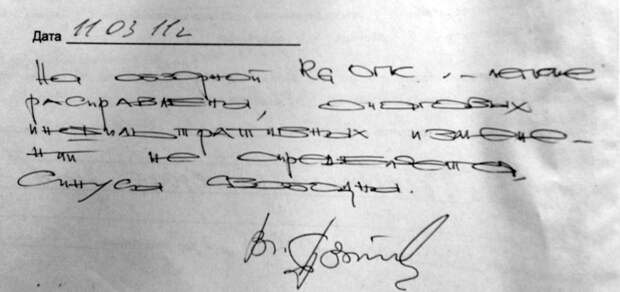 Дата 11 03 11г
На обзорной Rg ОГК – легкие
расправлены, очаговых
инфильтративных измене-
ний не определяется,
Синусы свободны.